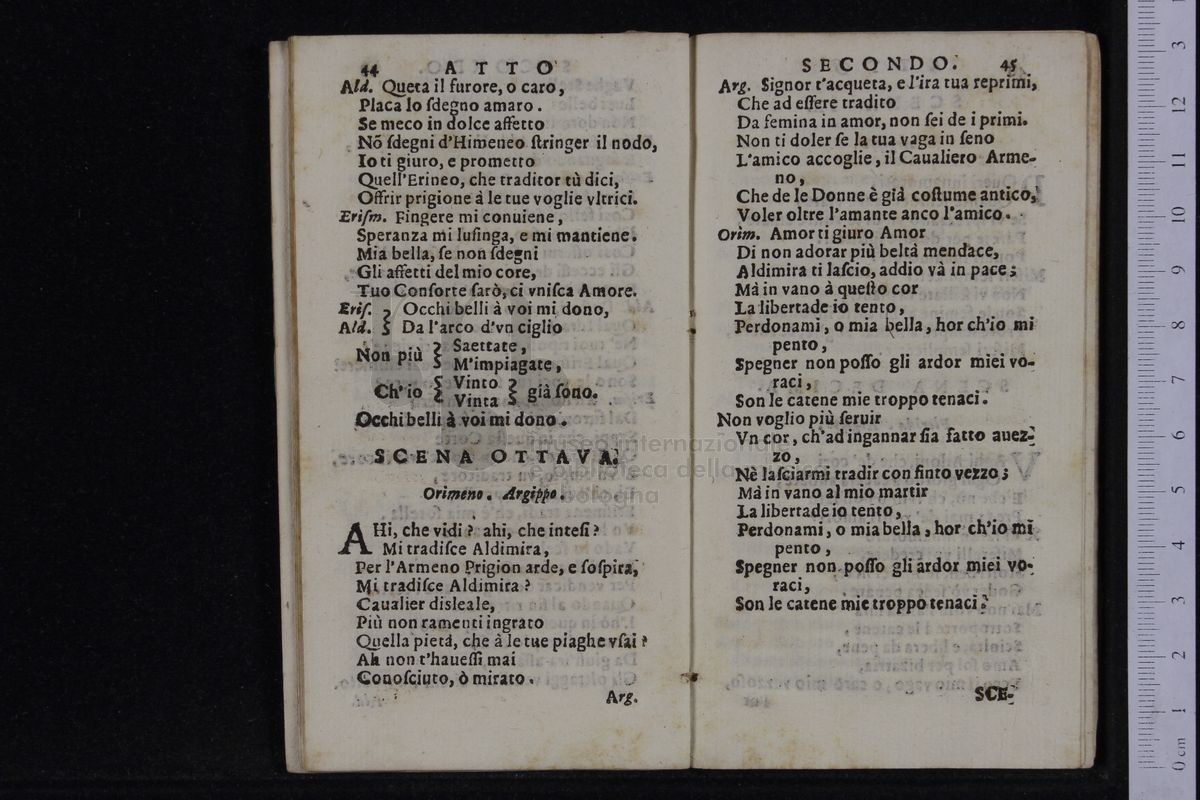 44 ATTO
Ald. Queta il furore, o caro,
Placa lo ſdegno amaro.
Se meco in dolce affetto
Nõ ſdegni d'Himeneo ſtringer il nodo,
Io ti giuro, e prometto
Quell'Erineo, che traditor tù dici,
Offrir prigione à le tue voglie vltrici.
Eriſm. Fingere mi conuiene,
Speranza mi luſinga, e mi mantiene.
Mia bella, ſe non ſdegni
Gli affetti del mio core,
Tuo Conſorte ſarò, ci vniſca Amore.
Eriſ. Occhi belli à voi mi dono,
Ald. Da l'arco d'vn ciglio
Non più Saettate,
M'impiagate,
Ch'io Vinto già ſono.
Vinta
Occhi belli à voi mi dono.
SCENA OTTAVA.
Orimeno. Argippo.
AHi, che vidi? ahi, che inteſi?
Mi tradiſce Aldimira,
Per l'Armeno Prigion arde, e ſoſpira,
Mi tradiſce Aldimira?
Caualier disleale,
Più non ramenti ingrato
Quella pietà, che à le tue piaghe vſai?
Ah non t'haueſſi mai
Conoſciuto, ò mirato.
Arg.
SECONDO. 45
Arg. Signor t'acqueta, e l'ira tua reprimi,
Che ad eſſere tradito
Da femina in amor, non ſei de i primi.
Non ti doler ſe la tua vaga in ſeno
L'amico accoglie, il Caualiero Arme-
no,
Che de le Donne è già coſtume antico,
Voler oltre l'amante anco l'amico.
Orim. Amor ti giuro Amor
Di non adorar più beltà mendace,
Aldimira ti laſcio, addio và in pace;
Mà in vano à queſto cor
La libertade io tento,
Perdonami, o mia bella, hor ch'io mi
pento,
Spegner non poſſo gli ardor miei vo-
raci,
Son le catene mie troppo tenaci.
Non voglio più ſeruir
Vn cor, ch'ad ingannar ſia fatto auez-
zo,
Nè laſciarmi tradir con finto vezzo;
Mà in vano al mio martir
La libertade io tento,
Perdonami, o mia bella, hor ch'io mi
pento,
Spegner non poſſo gli ardor miei vo-
raci,
Son le catene mie troppo tenaci?
SCE-
museo internazionale
e biblioteca della
bologna
0 cm 1 2 3 4 5 6 7 8 9 10 11 12 13